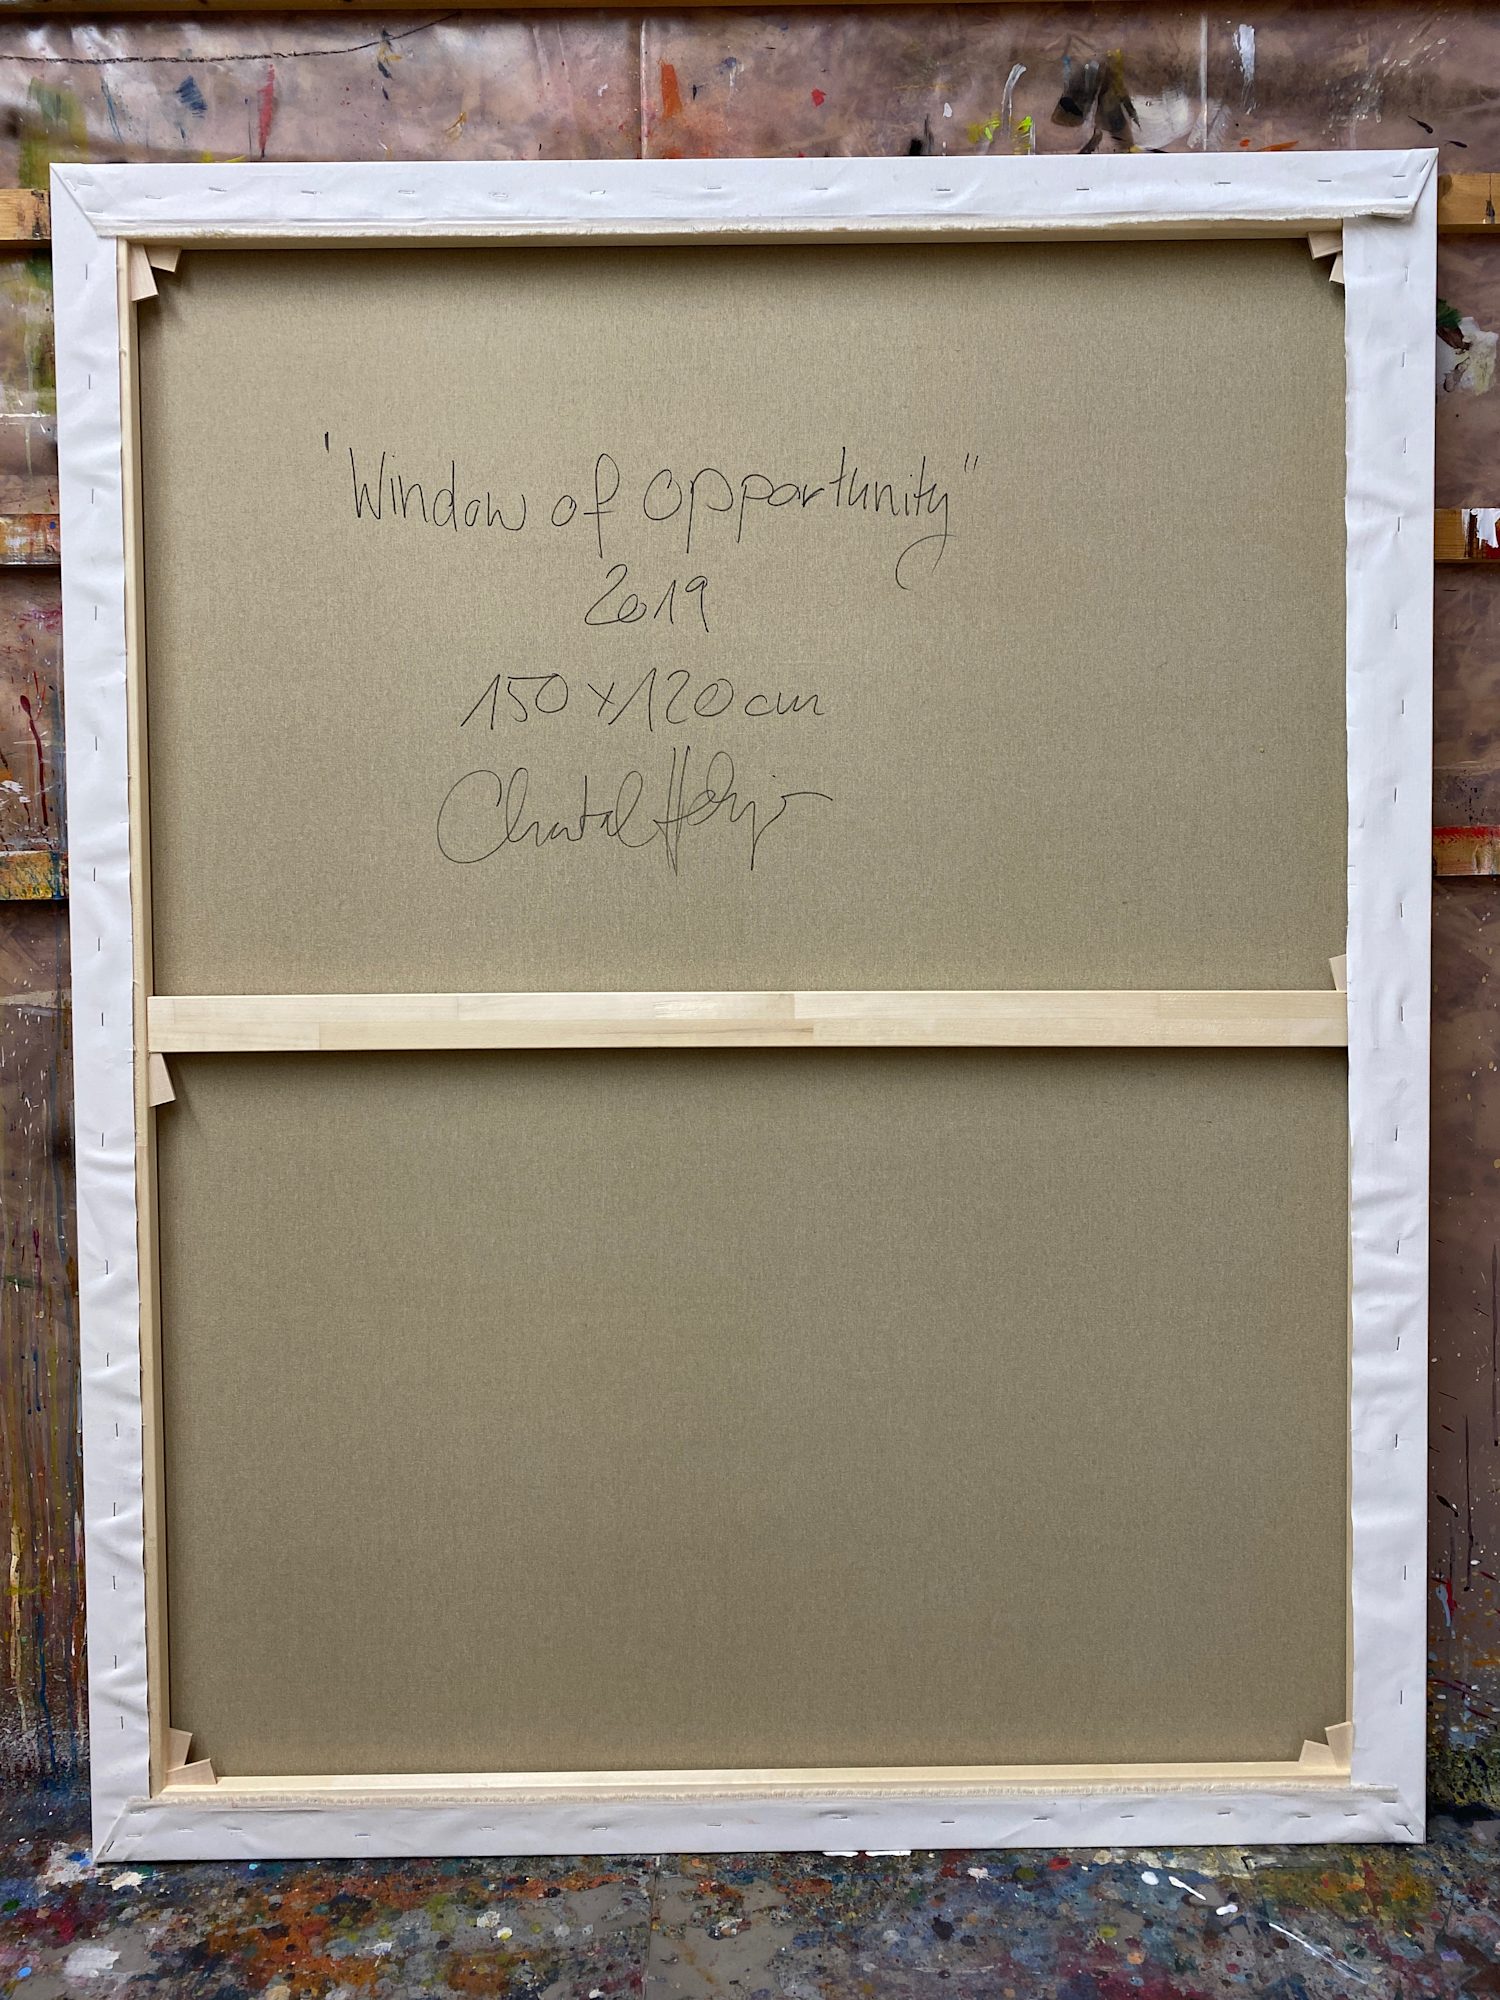 'Window of opportunity"
2019
150 x 120 cm
Chantal